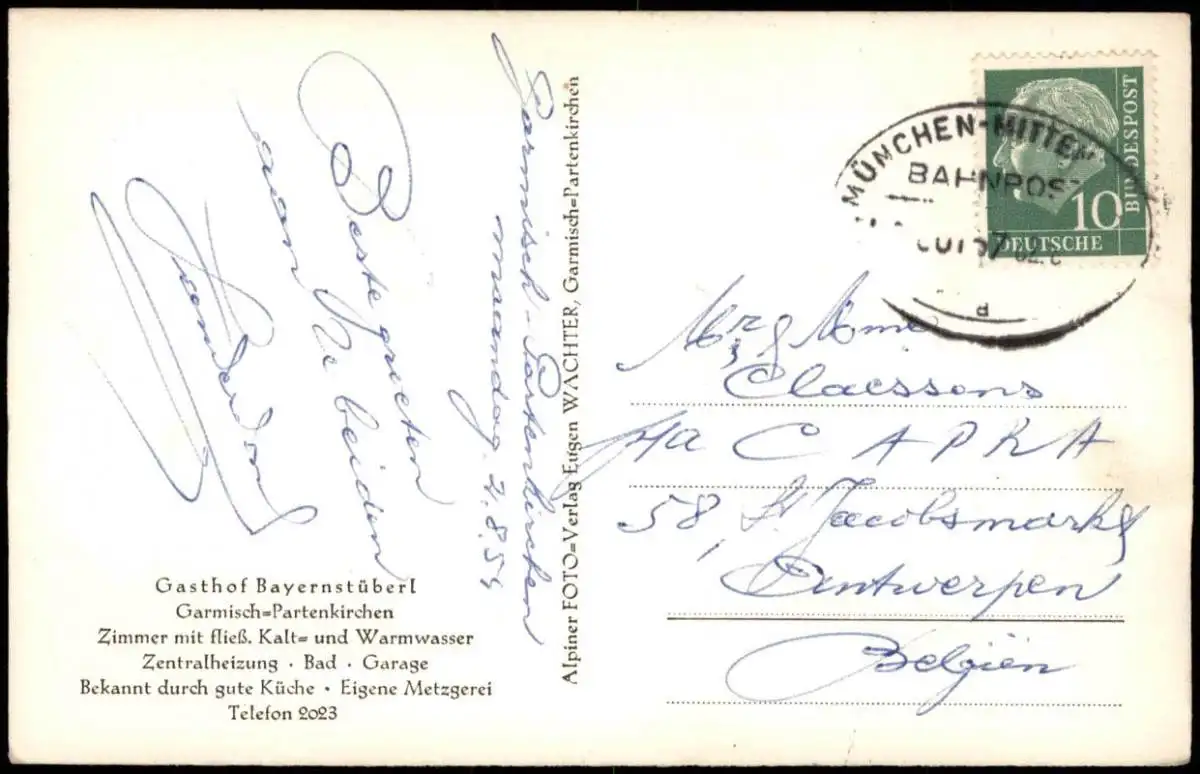 Garmisch-Partenkirchen
maandag 2.8.54
Beste groeten
van
beiden
Gasthof Bayernstüberl
Garmisch=Partenkirchen
Zimmer mit fließ. Kalt= und Warmwasser
Zentralheizung · Bad · Garage
Bekannt durch gute Küche · Eigene Metzgerei
Telefon 2023
Alpiner FOTO=Verlag Eugen WACHTER, Garmisch=Partenkirchen
MÜNCHEN-MITTEN
BAHNPOST
d
10
DEUTSCHE
BUNDESPOST
Mr & Mme
Claessens
CAPRA
58, St Jacobsmarkt
Antwerpen
Belgiën